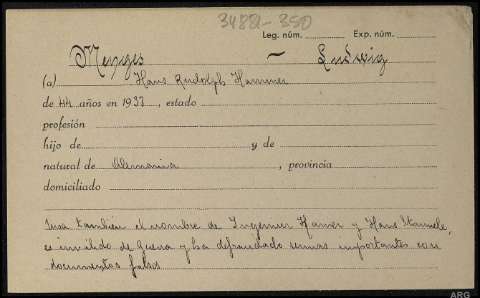 3488-350
Leg. núm. Exp. núm.
Menges ~ Ludwig
(a) Hans Rudolph Hammer
de 44 años en 1933, estado
profesión
hijo de y de
natural de Alemania, provincia
domiciliado
Usa también el nombre de Ingenieur Hamer y Hans
es invalido de guerra y ha defraudado sumas importantes con
documentos falsos
ARG